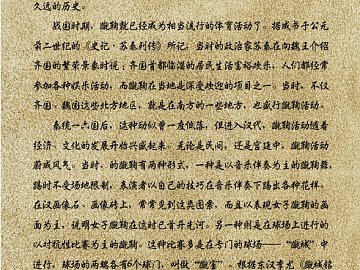 久远的历史。
战国时期，蹴鞠就已经成为相当流行的体育活动了。据成书于公元
前二世纪的《史记·苏秦列传》所记，当时的政治家苏秦在向魏王介绍
齐国的繁荣景象时说：齐国首都临淄的居民生活富裕欢乐，人们都经常
参加各种娱乐活动，而蹴鞠在当地是深受欢迎的项目之一。当时，不仅
齐国、魏国这些北方地区，就是在南方的一些地方，也盛行蹴鞠活动。
秦统一六国后，这种运动似曾一度低落，但进入汉代，蹴鞠活动随着
经济、文化的发展开始兴盛起来。无论是民间，还是宫廷中，蹴鞠活动
蔚成风气。当时，的蹴鞠有两种形式，一种是以音乐伴奏为主的蹴鞠舞，
踢时不受场地限制，表演者以自己的技巧在音乐伴奏下踢出各种花样。
在汉画像石、画像砖上，常常见到这类图景，而且以表现女子蹴鞠的画
面为主，说明女子蹴鞠在这时已首开先河。另一种则是在球场上进行的
以对抗性比赛为主的蹴鞠。这种比赛多是在专门的球场——“鞠城”中
进行，球场的两端各有6个球门，叫做“鞠室”。根据东汉李尤《鞠城铭